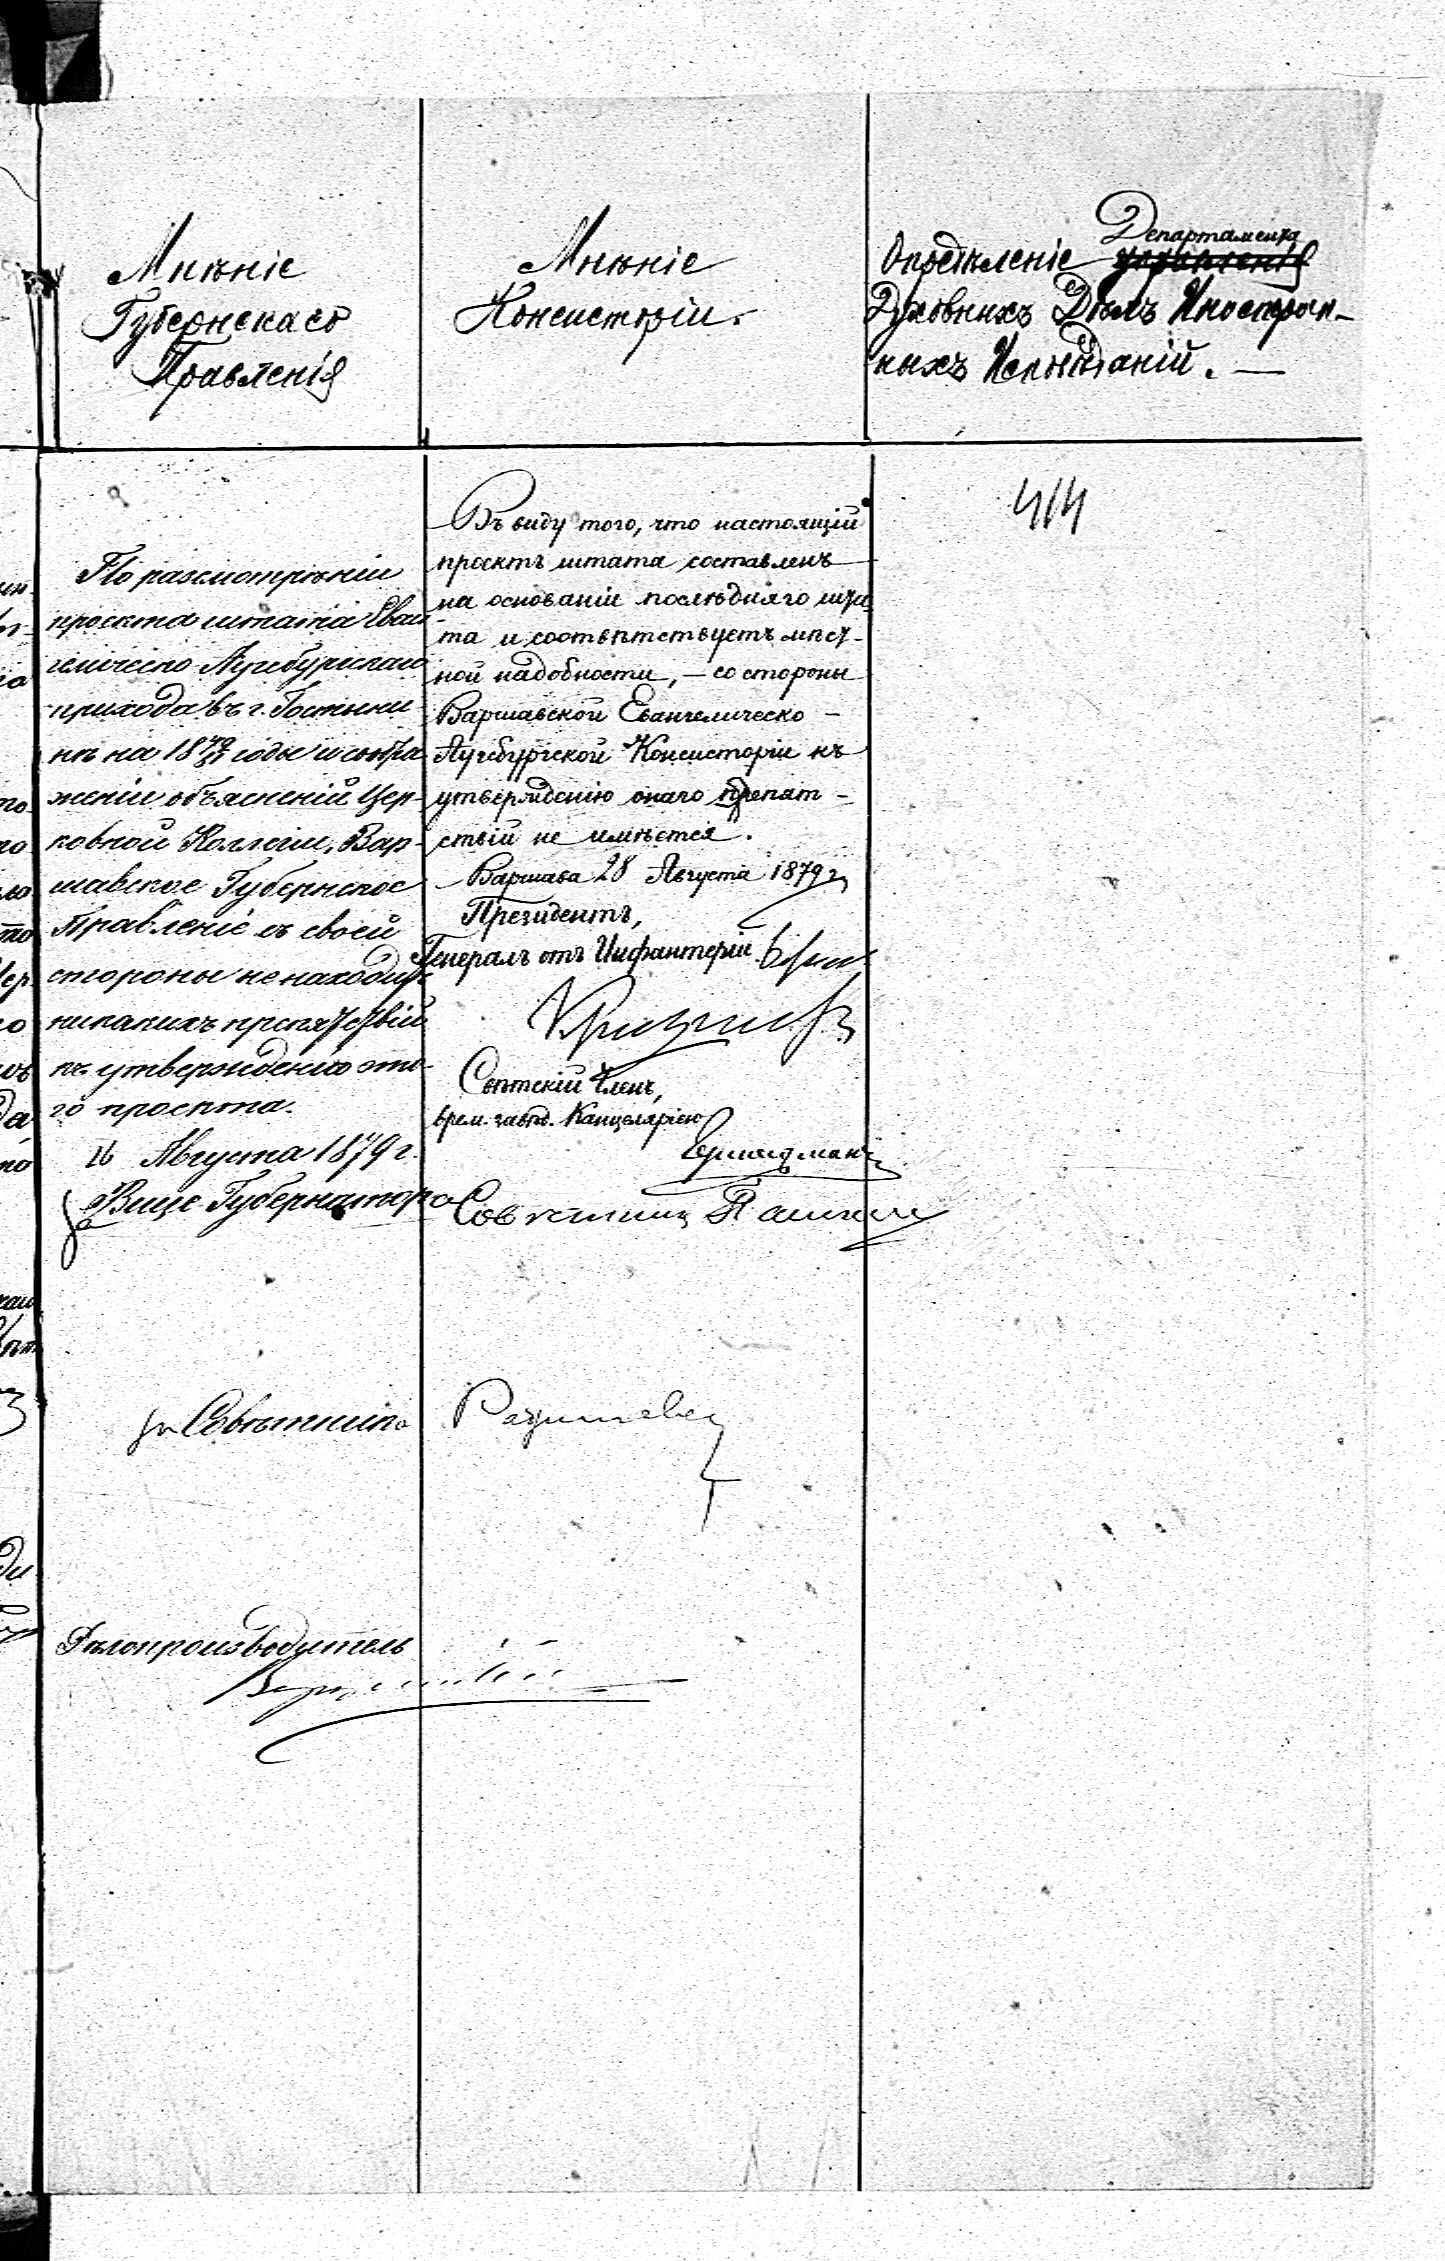 Мнѣніе
Губернскаго
Правленія
Мнѣніе
Консисторіи.
Департамента
Опредѣленіе управленія
Духовныхъ Дѣлъ Иностран-
ныхъ Исповѣданій. —
По разсмотрѣніи
проекта штата Еван-
гелическо Аугсбургскаго
прихода въ г. Гостыни-
нѣ на 1879/81 годы и сообра
женіи объясненій Цер-
ковной Коллегіи, Вар-
шавское Губернское
Правленіе съ своей
стороны не находитъ
никакихъ препятствій
къ утвержденію это-
го проекта.
16 Августа 1879 г.
За Вице Губернатора
за Совѣтника
Дѣлопроизводитель
Въ виду того, что настоящій
проектъ штата составленъ
на основаніи послѣдняго шта
та и соотвѣтствуетъ мѣст-
ной надобности, — со стороны
Варшавской Евангелическо —
Аугсбургской Консисторіи къ
утвержденію онаго препят —
ствій не имѣется.
Варшава 28 Августа 1879 г.
Президентъ,
Генералъ отъ Инфантеріи
Свѣтскій Членъ,
врем. завѣд. Канцеляріею
414